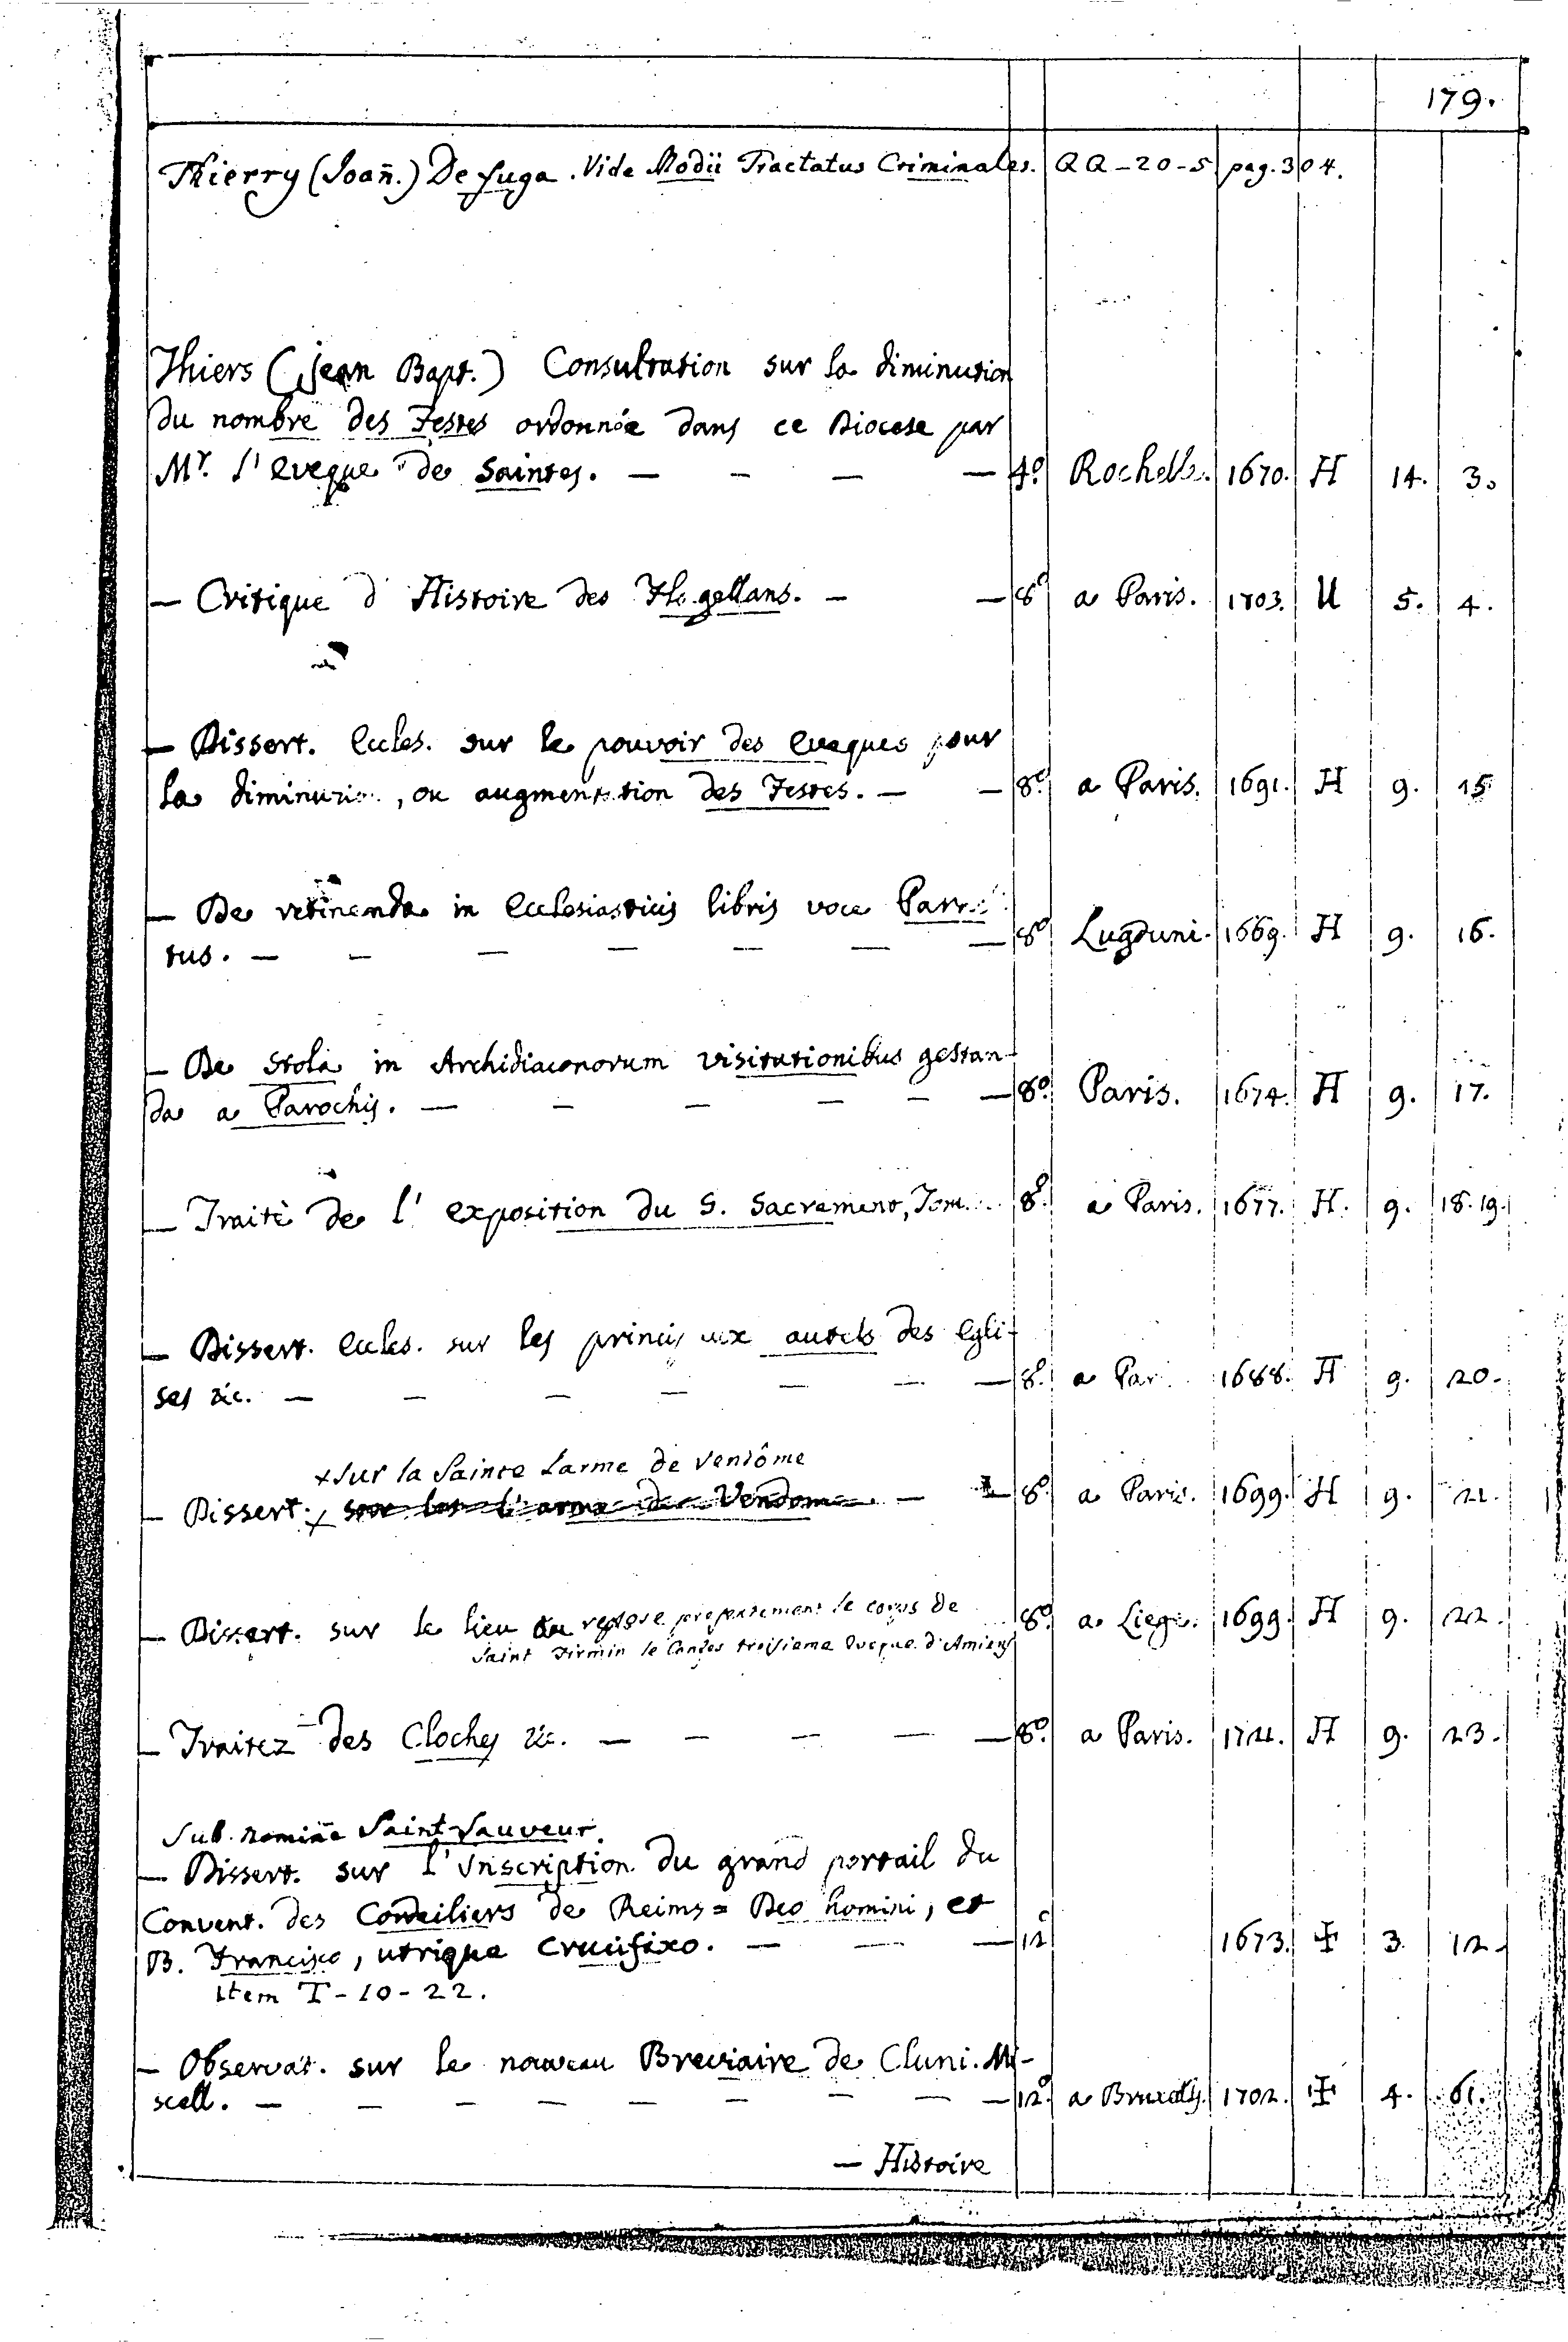 179.
Thierry (Joañ.) De fuga. Vide Modii Tractatus Criminales. QQ-20-5 pag. 304.
Thiers (jean Bapt.) Consultation sur la diminution
du nombre des Festes ordonnée dans ce Diocese par
Mr. l'eveque de Saintes. — — — — 4o. Rochelle. 1670. H 14. 3.
— Critique d' Histoire des Flagellans. — — 8o a Paris. 1703. U 5. 4.
— Dissert. Eccles. sur le pouvoir des eveques pour
la diminution, ou augmentation des Festes. — — 8o a Paris. 1691. H 9. 15
— De retinenda in Ecclesiasticis libris voce
tus. — — — — — — — 8o Lugduni. 1669. H 9. 16.
— De stola in Archidiaconorum visitationibus gestan-
da a Parochis. — — — — — — 8o. Paris. 1674. H 9. 17.
— Traitè de l' exposition du S. Sacrement, Tom. 8o. a Paris. 1677. H. 9. 18.19.
— Dissert. Eccles. sur les principaux autels des Egli-
ses &c. — — — — — — — 8o. a Par 1688. H 9. 20.
x sur la Sainte Larme de Vendôme
— Dissert. x sur la L'arme de Vendome — — 8o. a Paris. 1699. H 9. 21.
— Dissert. sur le lieu ou repose presentement le corps de 8o. a Liege. 1699. H 9. 22.
Saint Firmin le Confes troisieme Eveque d'Amiens
— Traitez des Cloches &c. — — — — — 8o. a Paris. 1721. H 9. 23.
Sub nomine Saint Sauveur.
— Dissert. sur l'Inscription du grand portail du
Convent. des Cordeiliers de Reims = Deo homini, et
B. Francisco, utrique crucifixo. — — — 12o 1673. ✠ 3. 12.
item T-10-22.
— Observat. sur le nouveau Breviaire de Cluni. Mi-
scell. — — — — — — — — — 12o. a Bruxelles. 1702. ✠ 4. 61.
— Histoire